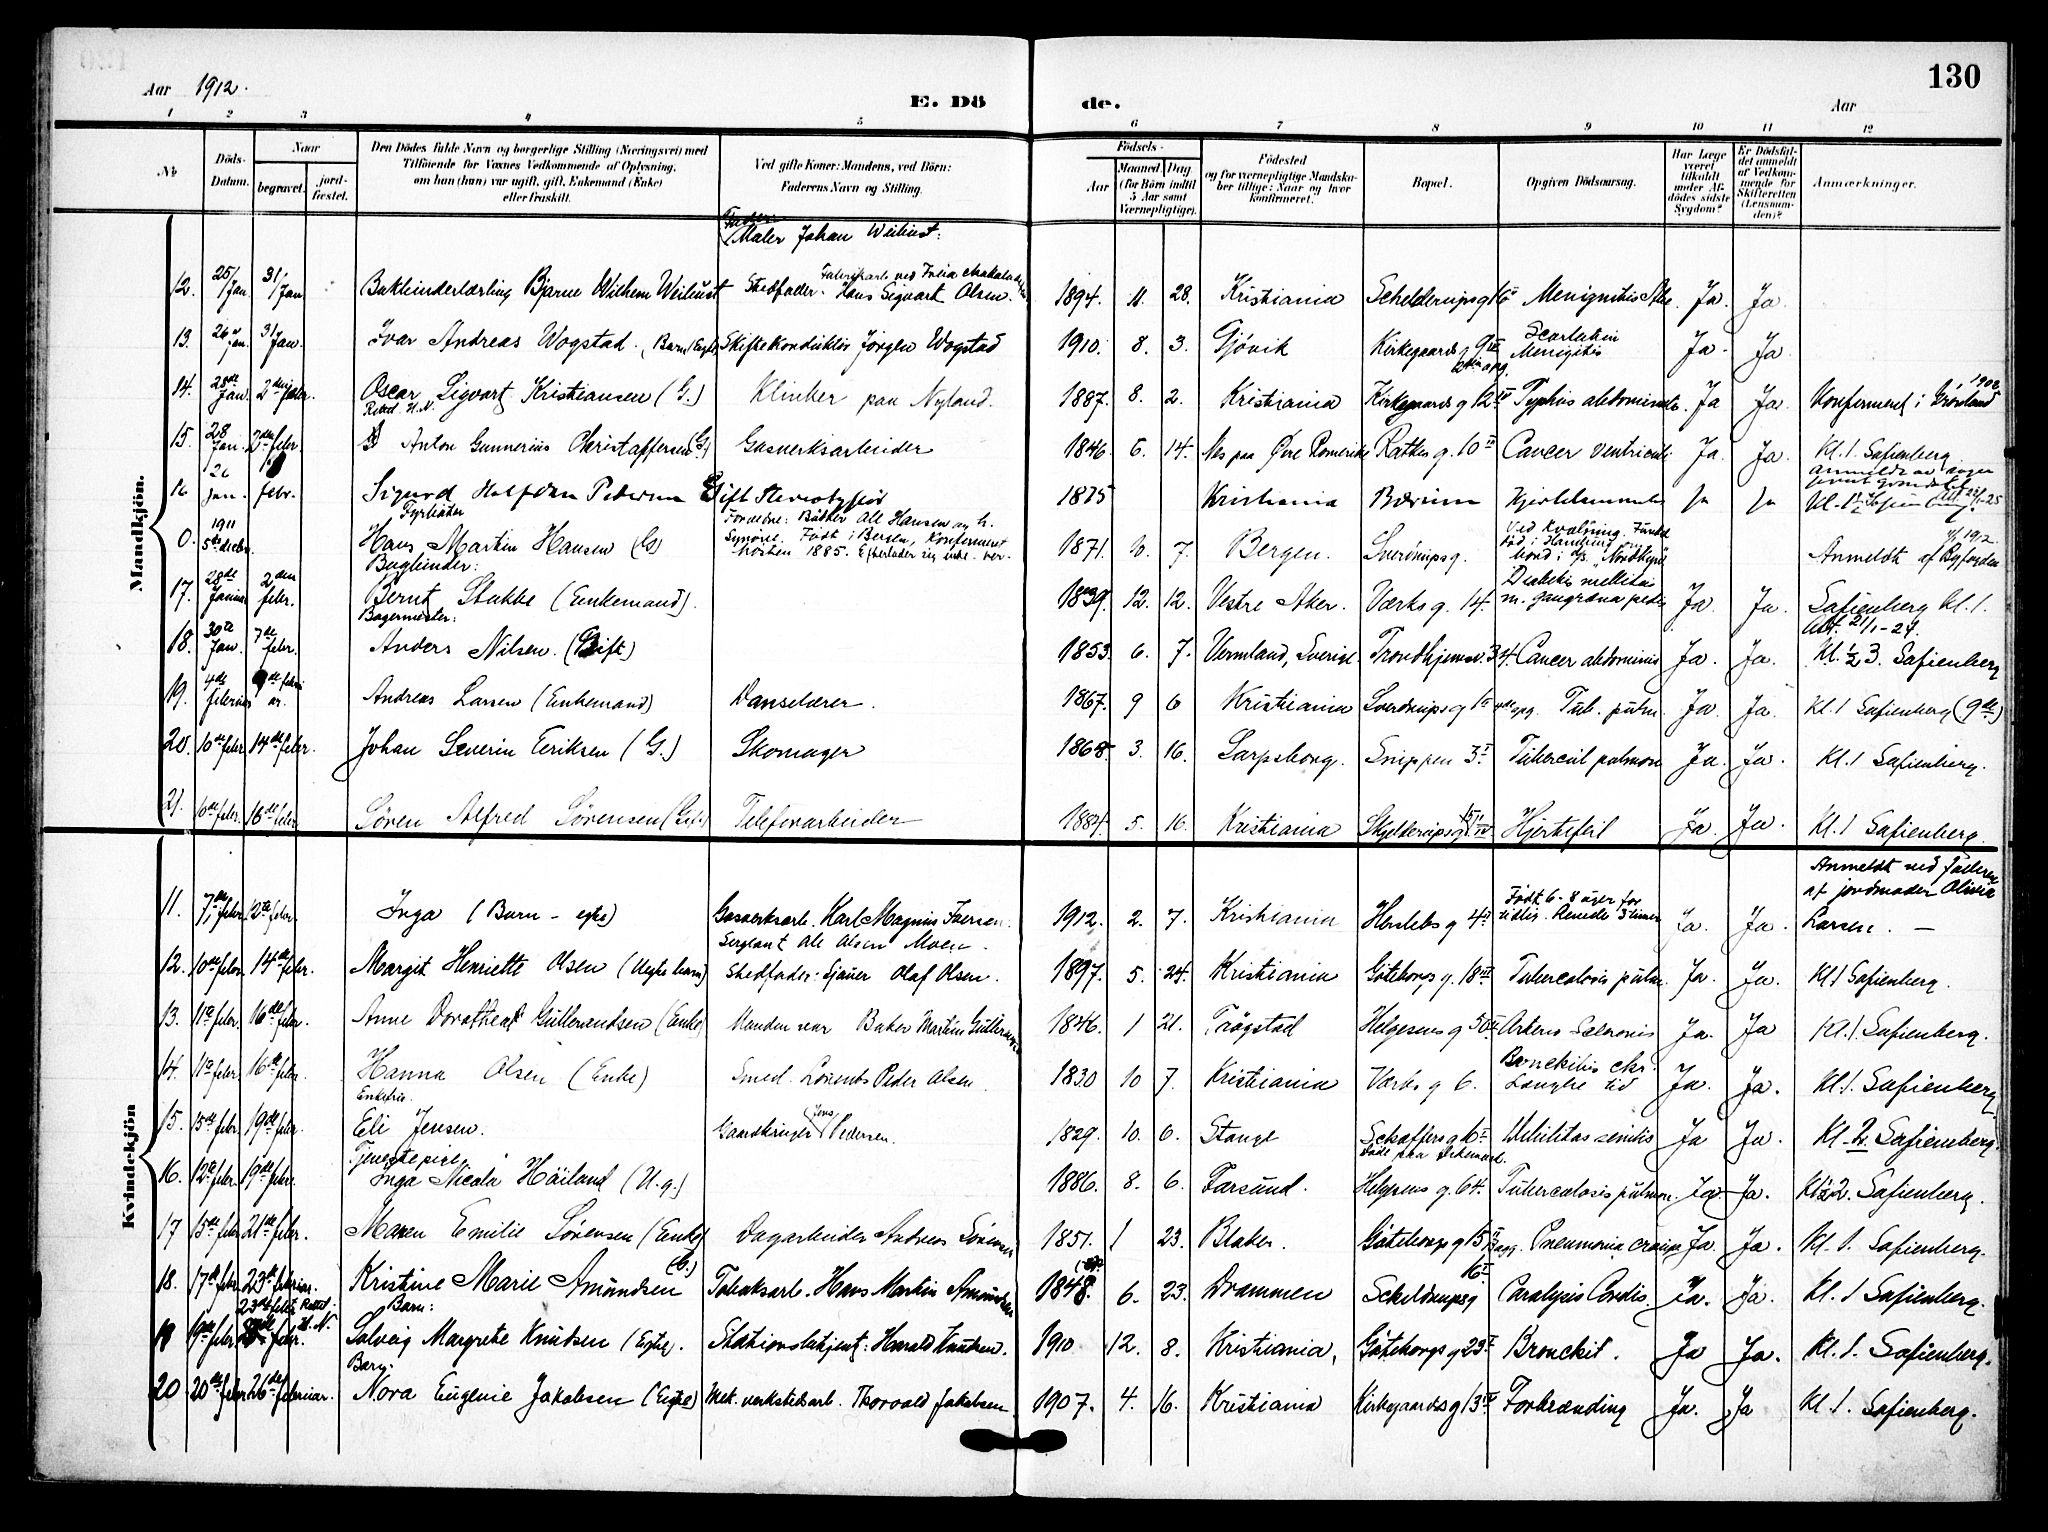 130
Aar 1912.
E. Dö de.
Aar
1 2 3 4 5 6 7 8 9 10 11 12
No
Döds-Datum.
Naar begravet. jordfæstet.
Den Dödes fulde Navn og borgerlige Stilling (Næringsvei) med
Tilföiende for Voxnes Vedkommende af Oplysning,
om han (hun) var ugift, gift, Enkemand (Enke)
eller fraskilt.
Ved gifte Koner: Mandens, ved Börn:
Faderens Navn og Stilling.
Födsels-
Aar Maaned. Dag.
(for Börn indtil
5 Aar samt
Værnepligtige).
Födested
og for værnepligtige Mandskaber tillige: Naar og hvor
konfirmeret.
Bopæl.
Opgiven Dödsaarsag.
Har Læge været tilkaldt under Afdödes sidste Sygdom?
Er Dödsfaldet anmeldt af Vedkommende for Skifteretten (Lensmanden)?
Anmærkninger.
Mandkjön.
Maler Johan Weiliust:
12. 25/ Jan 31/ Jan Bokbinderlærling Bjarne Wilhem Weiliust Stedfader. Hans Sigvart Olsen. 1894. 11. 28. Kristiania Ja. Ja.
13. 26 Jan. 31 Jan. Ivar Andreas Wogstad. (Barn Egte) Skiftekonduktör Jörgen Wogstad 1910. 8. 3. Gjövik Kirkegaardsg 9 IV Scarlatin Menigitis Ja. Ja
14. 28de Jan. 2den febr. Oscar Sigvart Kristiansen (G.) Klinker paa Nyland. 1887. 8. 2. Kristiania Kirkegaardsg 12 IV Typhus abdominalis. Ja Ja Konfermert i Grönland 1902
15. 28 Jan. 2den febr. Anton Gunnerius Christaffersen (G.) Gasverksarbeider 1846. 6. 14. Nes paa Övre Romerike Rathes g. 10 II Cancer ventriculi Ja Ja. Kl. 1. Safienberg
16 26 Jan. febr. Sigurd Halfdan Petersen Gift Stereotypör 1875 Kristiania Bærum Ja Ja
0. 1911 5te decbr. Fyrböter Hans Martin Hansen (G) Födt i Bergen, Konfermert hösten 1885. 1871. 10. 7. Bergen. Sverdrupsg. Anmeldt af Byfogden
17. 28de Januar 2den febr. Bugbinder: Bernt Stabbe (Enkemand). 1839. 12. 12. Vestre Aker. Værksg. 14. Diabetis mellitus m. gangræna pedis Ja. Ja. Safienberg Kl. 1.
18. 30te Jan. 7de febr. Bagermester: Anders Nilsen. (Gift) 1853. 6. 7. Vermland, Sverige. Trondhjemsv. 34. Cancer abdominis Ja. Ja. Kl. 1/2 3. Safienberg
19. 4de februar 9de februar. Andreas Larsen (Enkemand) Danselærer. 1867. 9 6 Kristiania Sverdrupsg 1 II Tub. pulm. Ja. Ja. Kl. 1 Safienberg (9de)
20. 10de febr. 14de febr. Johan Severin Eriksen (G.) Skomager 1868. 3. 16. Sarpsborg. Snippen 3 I Tubercul pulmon Ja. Ja. Kl. 1 Safienberg.
21. 10de febr. 16de febr. Sören Alfred Sörensen (Gift) Telefonarbeider 1884. 5. 16. Kristiania Hjertefeil Ja. Ja. Kl. 1 Safienberg.
Kvindekjön
11. 7de febr. 12te febr. Inga (Barn - egte) Gasverksarb. Karl Magnus Iversen. 1912. 2. 7. Kristiania Herslebs g 4 II Födt 6-8 uger for tidlig. Ja. Ja. Anmeldt ved Faderen af jordmoder Olivia Larsen.
12. 10de febr. 14de febr. Margit Henriette Olsen (Uegte barn) Sergeant Ole Olsen Moen. Stedfader: Sjauer Olaf Olsen. 1897. 5. 24. Kristiania Göteborgs g. 18 III Tuberculosis pulm. Ja. Ja. Kl. 1 Safienberg.
13. 11te febr. 16de febr. Anne Dorothea Gullerandsen (Enke) Manden var Baker Martin Gulleransen 1846. 1 21. Trögstad Helgesens g 50 Arterio Sclerosis Ja. Ja Kl. 1. Safienberg.
14. 11te febr. 16de febr. Hanna Olsen (Enke) Smed. Lorents Peder Olsen. 1830 10 7. Kristiania Værks g 6. Bronckitis chr. Længre tid Ja. Ja. Kl. 1. Safienberg.
15. 15de febr. 19de febr. Enkefru. Eli Jensen. Gaardbruger Jens Pedersen. 1829. 10. 6. Stange Schæffersg 16 I Debilitas senilis Ja Ja. Kl. 2. Safienberg.
16. 12te febr. 19de febr. Tjenestepige Inga Nicola Höiland (U.g.) 1886. 8. 6. Farsund. Helgesens g. 64. Tuberculosis pulmon. Ja. Ja. Kl 2. Safienberg.
17 15de febr. 21de febr. Maren Emilie Sörensen (Enke) Dagarbeider Andreas Sörensen 1851. 1 23. Blaker. Göteborgs g 15 II Pneumonia croupø Ja. Ja. Kl. 1. Safienberg.
18. 17de febr. 23de februar. Kristine Marie Amundsen (G.) Tobaksarb. Hans Martin Amundsen 1848. 6. 23. Drammen Scheldrupsg 16 I Paralysis Cordis. Ja. Ja. Kl. 1 Safienberg.
19 19de febr. 23de febr. Rettet: H.N. Barn: Solveig Margrete Knudsen (Egte). Stationsbetjent: Harald Knudsen. 1910 12. 8. Kristiania, Göteborgs g 23 I Bronckit. Ja Ja. Kl. 1. Safienberg.
20 20de febr 26de februar. Barn: Nora Eugenie Jakobsen (Egte) Mek. verkstedsarb. Thorvald Jakobsen. 1907. 4. 16. Kristiania Kirkegaardsg 13 IV Forbrænding Ja. Ja Kl. 1. Safienberg.